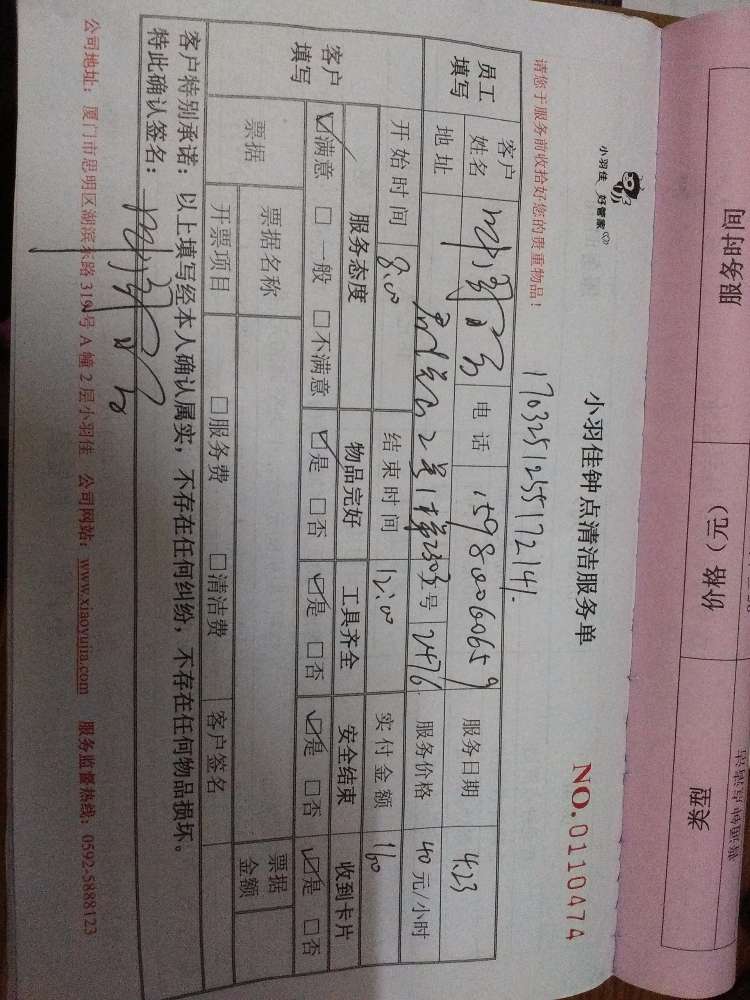 服务时间
价格（元）
类型
小羽佳 好管家
小羽佳钟点清洁服务单
NO.0110474
请您于服务前收拾好您的贵重物品！
1703251255172141.
员工填写
客户姓名
电话 15980060659
服务日期 4.23
地址
2号1梯2303
号 2476
服务价格 40元/小时
开始时间 8:00
结束时间 12:00
实付金额 160
客户填写
服务态度 物品完好 工具齐全 安全结束 收到卡片
☑满意 □一般 □不满意 ☑是 □否 ☑是 □否 ☑是 □否 ☑是 □否
票据
票据名称
票据金额
开票项目 □服务费 □清洁费 客户签名
客户特别承诺：以上填写经本人确认属实，不存在任何纠纷，不存在任何物品损坏。
特此确认签名：
公司地址：厦门市思明区湖滨东路319号A幢2层小羽佳 公司网站：www.xiaoyujia.com 服务监督热线：0592-5888123